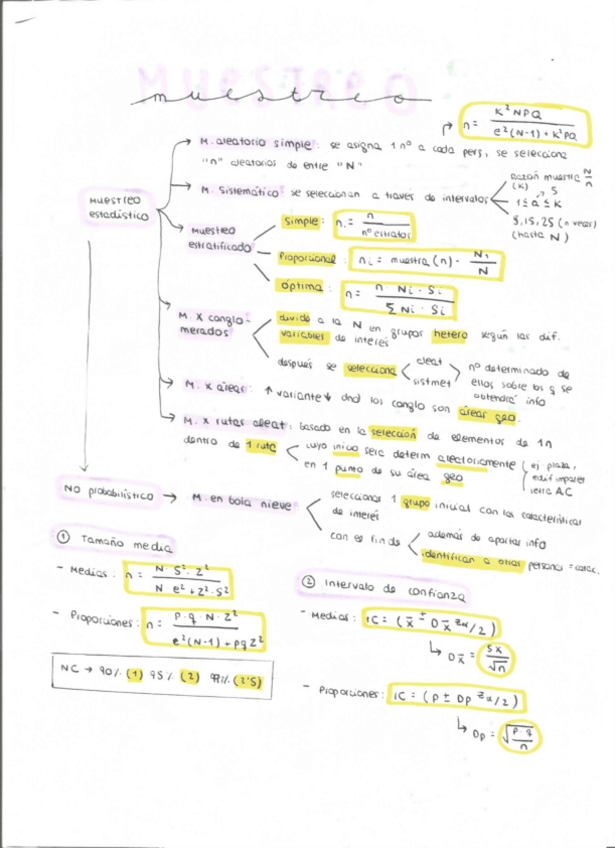 muestreo
n = K² N P Q / e² (N-1) + K² P Q
M. aleatorio simple: se asigna 1 nº a cada pers, se selecciona
"n" aleatorios de entre "N"
M. Sistemático se seleccionan a través de intervalos
razón muestra N/n
(K)
1 ≤ a ≤ K
5
5, 15, 25 (n veces)
(hasta N)
MUESTREO
estadístico
Muestreo
estratificado
simple: nᵢ = n / nº estratos
Proporcional: nᵢ = muestra (n) · Nᵢ / N
óptima: n = n · Ni · Si / Σ Ni · Si
M. X conglo-
merados
divide a la N en grupos hetero según las dif.
variables de interés
después se selecciona
aleat
sistmet
nº determinado de
ellos sobre los q se
obtendrá info
M. x áreas: ↑ variante ↓ dnd los conglo son áreas geo.
M. x rutas aleat: basado en la selección de elementos de 1 n
dentro de 1 ruta
cuyo inicio será determ aleatoriamente
en 1 punto de su área geo
ej plaza,
edif impares
letra AC
NO probabilístico → M. en bola nieve:
seleccionar 1 grupo inicial con las características
de interés
con el fin de
además de aportar info
identifican a otras personas = carac.
① Tamaño media
- Medias: n = N · S² · Z² / N e² + Z² · S²
- Proporciones: n = P · q · N · Z² / e² (N-1) + pq Z²
NC → 90% (1) 95% (2) 99% (2'5)
② Intervalo de confianza
- Medias: IC = (x̄ ± D x̄ Zα/2)
↳ D x̄ = Sx / √n
- Proporciones: IC = (p ± Dp Zα/2)
↳ Dp = √(p · q / n)